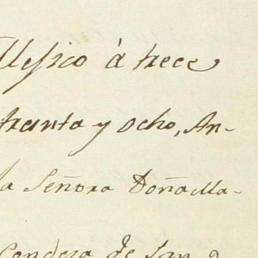 Mexico à trece
treinta y ocho, An-
la Señora Doña Ma-
Condesa de San